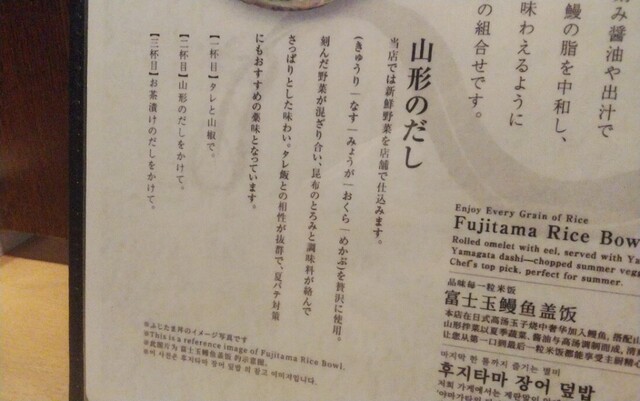 刻み醤油や出汁で
鰻の脂を中和し、
味わえるように
の組合せです。
山形のだし
当店では新鮮野菜を店舗で仕込みます。
(きゅうり|なす|みょうが|おくら|めかぶ)を贅沢に使用。
刻んだ野菜が混ざり合い、昆布のとろみと調味料が絡んで
さっぱりとした味わい。タレ飯との相性が抜群で、夏バテ対策
にもおすすめの薬味となっています。
【一杯目】タレと山椒で。
【二杯目】山形のだしをかけて。
【三杯目】お茶漬けのだしをかけて。
※ふじたま丼のイメージ写真です
※This is a reference image of Fujitama Rice Bowl.
※此图片为富士玉鳗鱼盖饭的示意图。
※이 사진은 후지타마 장어 덮밥 의 참고 이미지입니다.
Enjoy Every Grain of Rice
Fujitama Rice Bow
Rolled omelet with eel, served with Ya
Yamagata dashi—chopped summer veg
Chef's top pick, perfect for summer.
品味每一粒米饭
富士玉鳗鱼盖饭
本店在日式高汤玉子烧中奢华加入鳗鱼，搭配山
山形拌菜以夏季蔬菜、酱油与高汤调制而成，清
让您从第一口到最后一粒米饭都能享受主厨精心
마지막 한 톨까지 즐기는 별미
후지타마 장어 덮밥
저희 가게에서는 계란말이